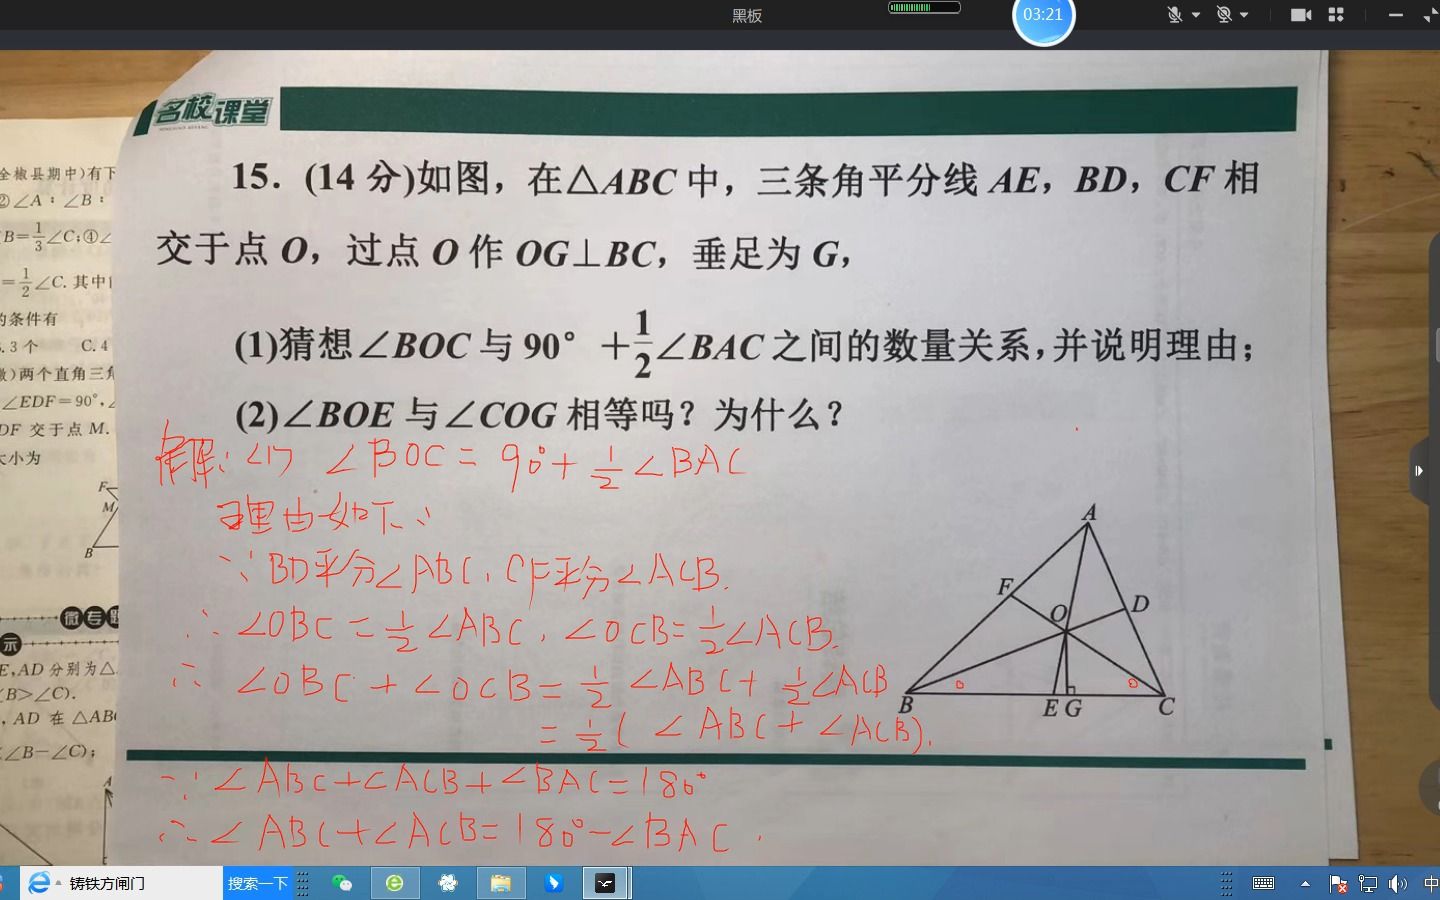 黑板
03:21
名校课堂
15. (14分)如图，在△ABC中，三条角平分线AE，BD，CF相
交于点O，过点O作OG⊥BC，垂足为G，
(1)猜想∠BOC与90°+1/2∠BAC之间的数量关系，并说明理由；
(2)∠BOE与∠COG相等吗？为什么？
解：(1) ∠BOC = 90°+ 1/2∠BAC
理由如下：
∵BD平分∠ABC，CF平分∠ACB.
∴∠OBC = 1/2∠ABC，∠OCB = 1/2∠ACB.
∴ ∠OBC + ∠OCB = 1/2 ∠ABC + 1/2∠ACB
= 1/2( ∠ABC + ∠ACB).
∵∠ABC+∠ACB+∠BAC=180°
∴∠ABC+∠ACB=180°-∠BAC
A
F
O
D
B
E
G
C
全椒县期中)有下
②∠A：∠B：
B=1/3∠C;④∠
=1/2∠C.其中
的条件有
3个 C.4
)两个直角三角
∠EDF=90°,∠
DF 交于点M.
大小为
F
M
B
微专题
示
E,AD分别为△
B>∠C).
,AD 在△ABC
∠B-∠C);
A
铸铁方闸门
搜索一下
中